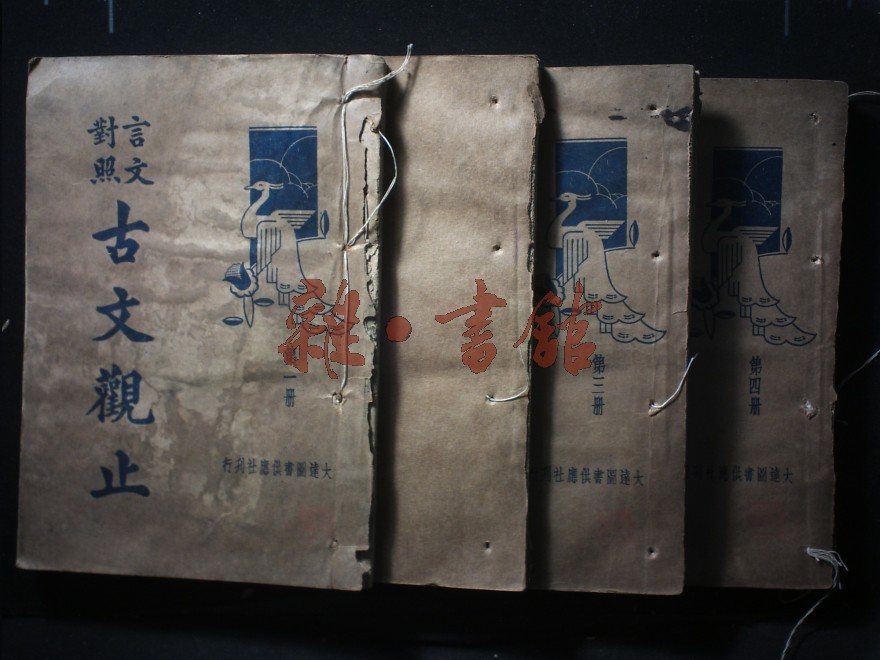 言文
對照
古文觀止
第一册
大達圖書供應社刊行
第三册
大達圖書供應社刊
第四册
大達圖書供應社刊
雜·書館